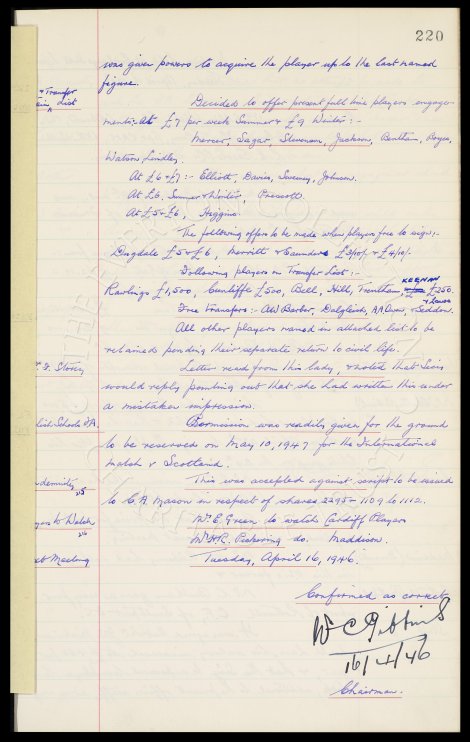 220
was given powers to acquire the player up to the last named
figure.
& Transfer
List
Decided to offer present full time players engage-
ments:- At £7 per week Summer & £9 Winter :-
Mercer, Sagar, Stevenson, Jackson, Bentham, Boyes,
Watson Lindley.
At £6 & £7 :- Elliott, Davies, Sweeney, Johnson.
At £6, Summer & Winter, Prescott.
At £5 & £6, Higgins.
The following offers to be made when players free to sign;-
Dugdale £5 & £6, Merritt & Saunders £3/10/- & £4/10/-
Following players on Transfer List :-
KEENAN
Rawlings £1,500, Cunliffe £500, Bell, Hill, Trentham, £250.
& Lowe
Free Transfers :- AW Barber, Dalgleish, AA Owen, & Seddon.
All other players named in attached list to be
retained pending their separate return to civil life.
F. Storey
Letter read from this lady, & noted that Secy
would reply pointing out that she had written this under
a mistaken impression.
lish Schools F.A.
Permission was readily given for the ground
to be reserved on May 10, 1947 for the International
match v Scotland.
demnity
This was accepted against script to be issued
to C. A. Mason in respect of shares 2295 - 1109 to 1112.
yers to Watch
Mr. E. Green to watch Cardiff Players
Mr. H.R. Pickering do. Maddison.
Meeting
Tuesday, April 16, 1946.
Confirmed as correct
W C Gibbins
16/4/46
Chairman.